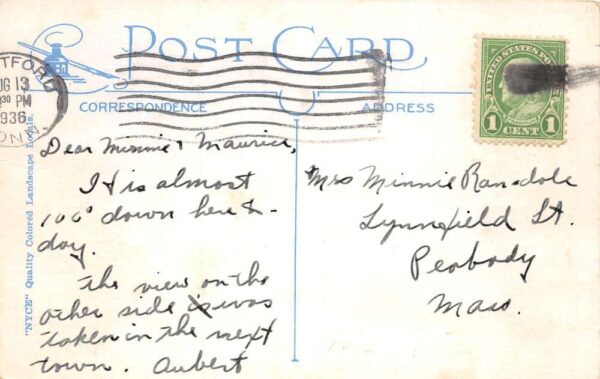 POST CARD
TFORD
UG 13
30 PM
936
ONN.
CORRESPONDENCE
ADDRESS
UNITED STATES POSTAGE
1 1
CENT
"NYCE" Quality Colored Landscape
Dear Minnie & Maurice,
It is almost
100° down here to-
day.
The view on the
other side is was
taken in the next
town. Aubert
Mrs Minnie Ransdole
Lynnfield St.
Peabody
Mass.